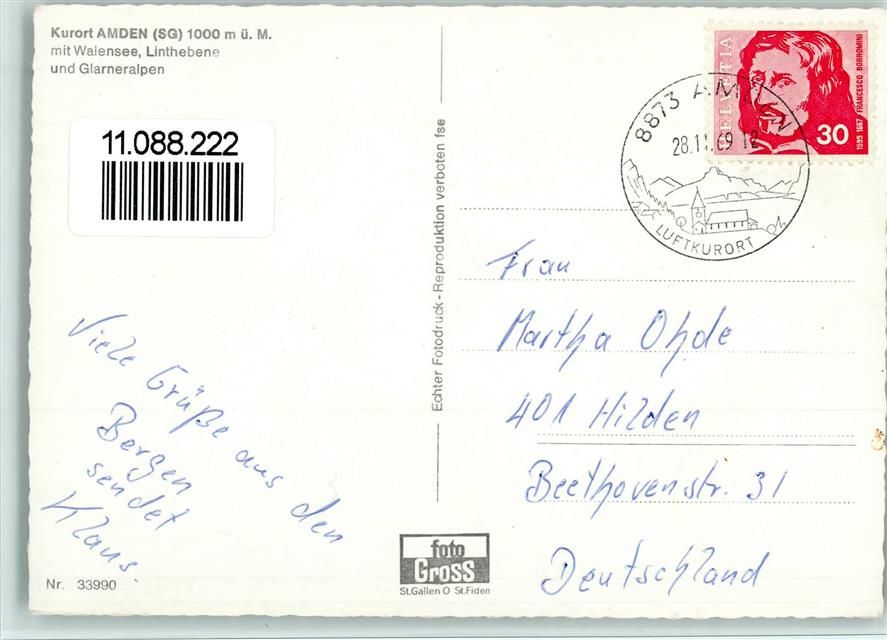 Kurort AMDEN (SG) 1000 m ü. M.
mit Walensee, Linthebene
und Glarneralpen
11.088.222
Viele Grüße aus den
Bergen
sendet
Klaus.
Nr. 33990
Echter Fotodruck - Reproduktion verboten fse
foto
Gross
St.Gallen O St.Fiden
HELVETIA
30
1599 1667 FRANCESCO BORROMINI
8873 AMDEN
28.11.69 12
LUFTKURORT
Frau
Martha Ohde
401 Hilden
Beethovenstr. 31
Deutschland